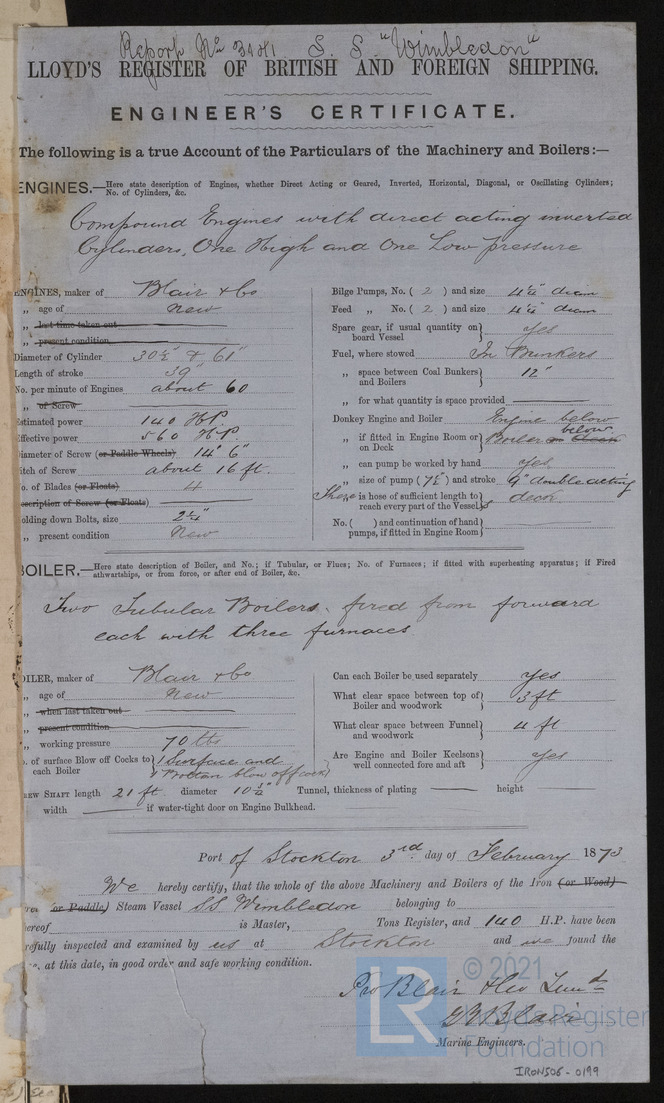 Report No 3481 S. S. "Wimbledon"
LLOYD'S REGISTER OF BRITISH AND FOREIGN SHIPPING.
ENGINEER'S CERTIFICATE.
The following is a true Account of the Particulars of the Machinery and Boilers:—
ENGINES.—Here state description of Engines, whether Direct Acting or Geared, Inverted, Horizontal, Diagonal, or Oscillating Cylinders;
No. of Cylinders, &c.
Compound Engines with direct acting inverted
Cylinders, One High and One Low pressure
ENGINES, maker of Blair & Co
„ age of New
„ last time taken out
„ present condition
Diameter of Cylinder 30½" & 61"
Length of stroke 39"
No. per minute of Engines about 60
„ of Screw
Estimated power 140 HP.
Effective power 560 H.P.
Diameter of Screw (or Paddle Wheels) 14" 6"
Pitch of Screw about 16 ft.
No. of Blades (or Floats) 4
Description of Screw (or Floats)
Holding down Bolts, size 2¼"
„ present condition New
Bilge Pumps, No. ( 2 ) and size 4½" diam
Feed „ No. ( 2 ) and size 4½" diam
Spare gear, if usual quantity on
board Vessel } yes
Fuel, where stowed In Bunkers
„ space between Coal Bunkers
and Boilers } 12"
„ for what quantity is space provided
Donkey Engine and Boiler Engine below
„ if fitted in Engine Room or
on Deck } Boiler on Deck below
„ can pump be worked by hand yes
„ size of pump (7½") and stroke 9" double acting
There is hose of sufficient length to
reach every part of the Vessel } deck
No. ( ) and continuation of hand
pumps, if fitted in Engine Room }
BOILER.—Here state description of Boiler, and No.; if Tubular, or Flues; No. of Furnaces; if fitted with superheating apparatus; if Fired
athwartships, or from force, or after end of Boiler, &c.
Two Tubular Boilers. fired from forward
each with three furnaces
BOILER, maker of Blair & Co
„ age of New
„ when last taken out
„ present condition
„ working pressure 70 lbs
No. of surface Blow off Cocks to
each Boiler } 1 Surface and
1 Bottom blow off cock
Can each Boiler be used separately yes
What clear space between top of
Boiler and woodwork } 3 ft
What clear space between Funnel
and woodwork } 4 ft
Are Engine and Boiler Keelsons
well connected fore and aft } yes
SCREW SHAFT length 21 ft. diameter 10½" Tunnel, thickness of plating height
width if water-tight door on Engine Bulkhead.
Port of Stockton 3rd. day of February 1873
We hereby certify, that the whole of the above Machinery and Boilers of the Iron (or Wood)
(or Paddle) Steam Vessel SS Wimbledon belonging to
whereof is Master, Tons Register, and 140 H.P. have been
carefully inspected and examined by us at Stockton and we found the
, at this date, in good order and safe working condition.
Pro Blair & Co Limd
G Y Blair
Marine Engineers.
© 2021
Lloyd's Register
Foundation
LR
IRON508-0199